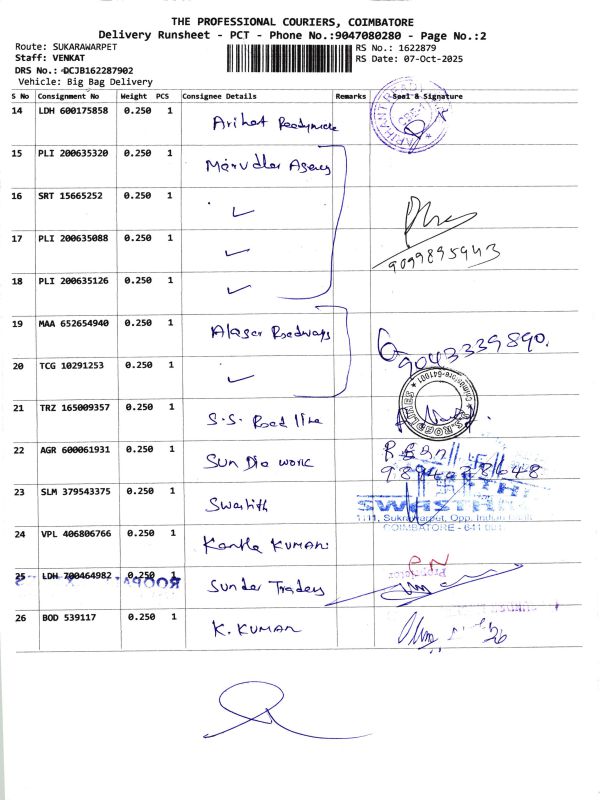 THE PROFESSIONAL COURIERS, COIMBATORE
Delivery Runsheet - PCT - Phone No.:9047080280 - Page No.:2
Route: SUKARAWARPET RS No.: 1622879
Staff: VENKAT RS Date: 07-Oct-2025
DRS No.: DCJB162287902
Vehicle: Big Bag Delivery
S No Consignment No Weight PCS Consignee Details Remarks Seal & Signature
14 LDH 600175858 0.250 1
15 PLI 200635320 0.250 1
16 SRT 15665252 0.250 1 ✓
17 PLI 200635088 0.250 1 ✓
9099895943
18 PLI 200635126 0.250 1 ✓
19 MAA 652654940 0.250 1 Roadways
9043339890.
20 TCG 10291253 0.250 1 ✓
21 TRZ 165009357 0.250 1 S.S. Road line
22 AGR 600061931 0.250 1 Sun Dio work
23 SLM 379543375 0.250 1 Swastith
SWASTH
1111, Sukrawarpet, Opp. Indian Bank
COIMBATORE - 641 001
24 VPL 406806766 0.250 1 KUMAR
25 LDH 700464982 0.250 1 Sunder Traders
26 BOD 539117 0.250 1 K. KUMAR